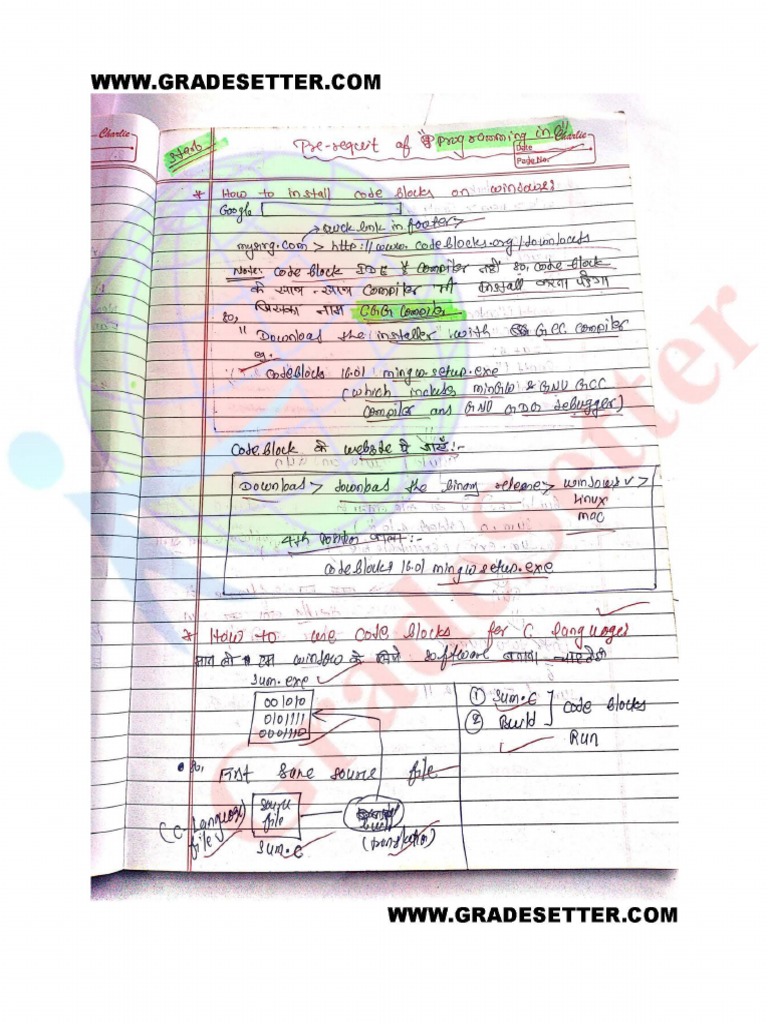 WWW.GRADESETTER.COM
Charlie
Charlie
Start
Pre-requit of "Programming in C"
Date
Page No.
* How to install code blocks on windows
Google
quick link in footer >
mysirg.com > http://www.codeblocks.org/downloads
Note: code block IDE है compiler नहीं so, code block
के साथ-साथ compiler भी install करना पड़ेगा
जिसका नाम GCC compiler
so,
"Download the installer with GCC compiler
eg.
codeblocks 16.01 mingw setup.exe
(which includes minGW & GNU GCC
compiler and GNU GDB debugger)
Code block के website पे जाएँ:-
Download > download the binary release > windows ✓ >
Linux
mac
4th position वाला:-
codeblocks 16.01 mingw setup.exe
* How to use code blocks for C languages
मान लो हम window के लिये software बनाना
sum.exe
001010
0101111
0001110
① sum.c
② Build
code blocks
Run
• so, First save source file
(C language)
file
source
file
build
sum.c
(translation)
GradeSetter
WWW.GRADESETTER.COM